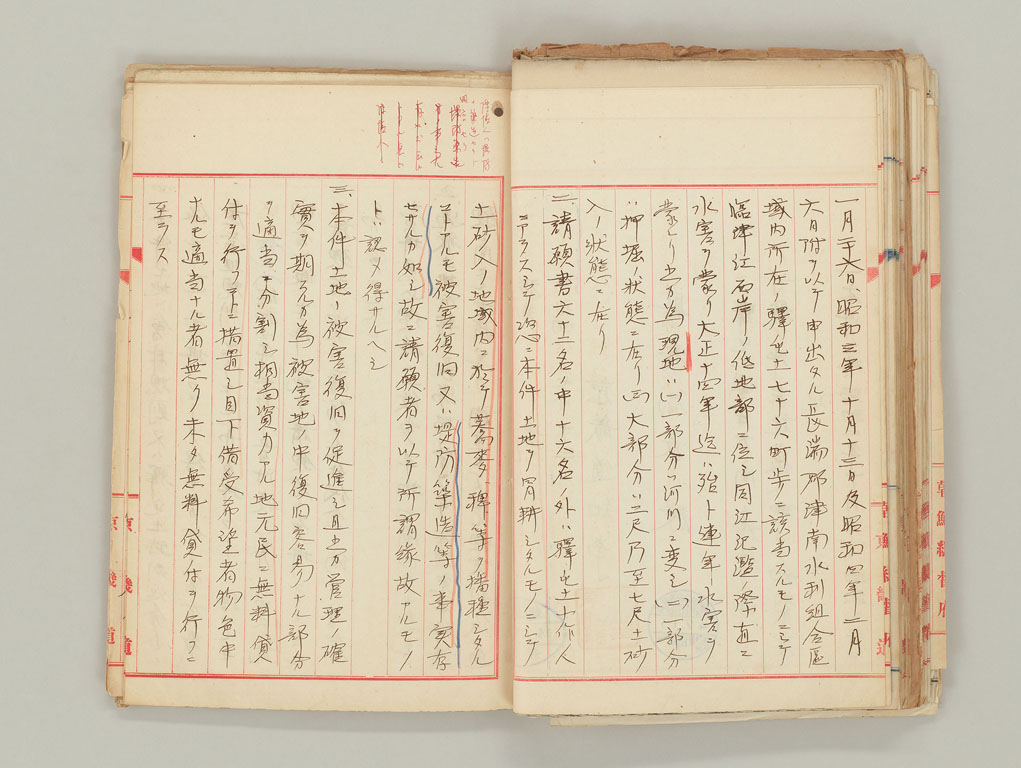 一月二十八日、昭和三年十月十三日及昭和四年二月
六日附ヲ以テ申出タル長湍郡津南水利組合區
域内所在ノ驛屯土七十六町歩ニ該当スルモノニシテ
臨津江右岸ノ低地部ニ位シ同江氾濫ノ際直ニ
水害ヲ蒙リ大正十四年迄ハ殆ト連年水害ヲ
蒙リ之カ為現地ハ(一)一部分ハ河川ニ変シ(二)一部分
ハ押堀ノ状態ニ在リ(三)大部分ハ二尺乃至七尺土砂
入ノ状態ニ在リ
二、請願書六十一名ノ中十六名ノ外ハ驛屯土小作人
ニアラスシテ恣ニ本件土地ヲ冒耕シタルモノニシテ
土砂入ノ地域内ニ於テ蕎麥、稗等ヲ播種シタル
コトアルモ被害復旧又ハ堤防築造等ノ事実存
セサルカ如シ故ニ請願者ヲ以テ所謂縁故アルモノ
トハ認メ得サルヘシ
三、本件土地ノ被害復旧ヲ促進シ且之カ管理ノ確
實ヲ期スルカ為被害地ノ中復旧容易ナル部分
ヲ適当ニ分割シ相当資力アル地元民ニ無料貸
付ヲ行フコトニ措置シ目下借受希望者物色中
ナルモ適当ナル者無ク未タ無料貸付ヲ行フニ
至ラス
朝鮮總督府
京畿道